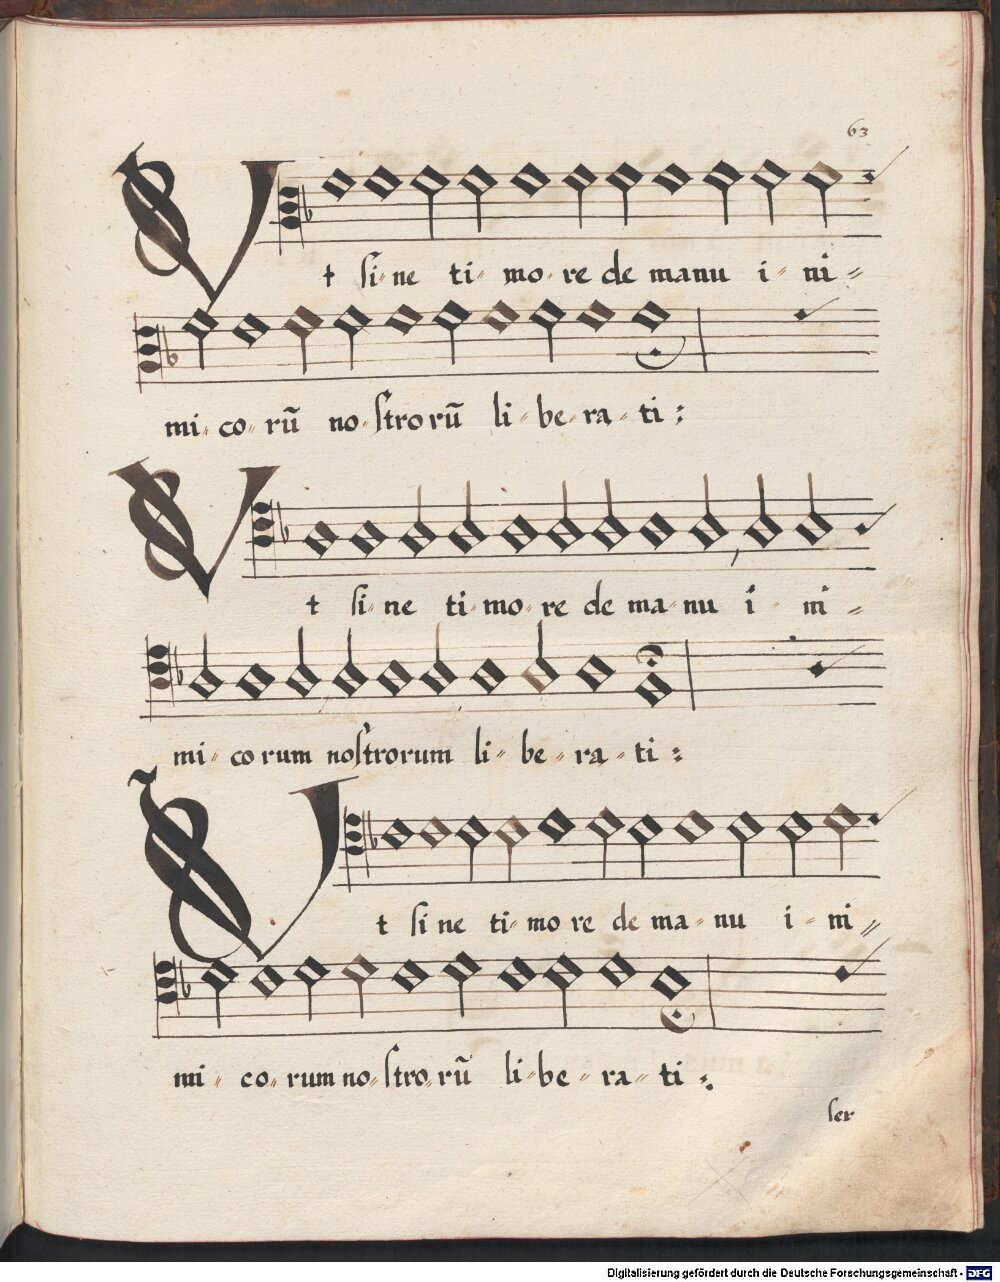 63
Vt si-ne ti-mo-re de manu i-ni-
mi-co-rū no-strorū li-be-ra-ti:
Vt si-ne ti-mo-re de ma-nu i-ni-
mi-corum nostrorum li-be-ra-ti:
Vt sine ti-more de ma-nu i-ni-
mi-co-rum no-stro-rū li-be-ra-ti:
ser
Digitalisierung gefördert durch die Deutsche Forschungsgemeinschaft - DFG